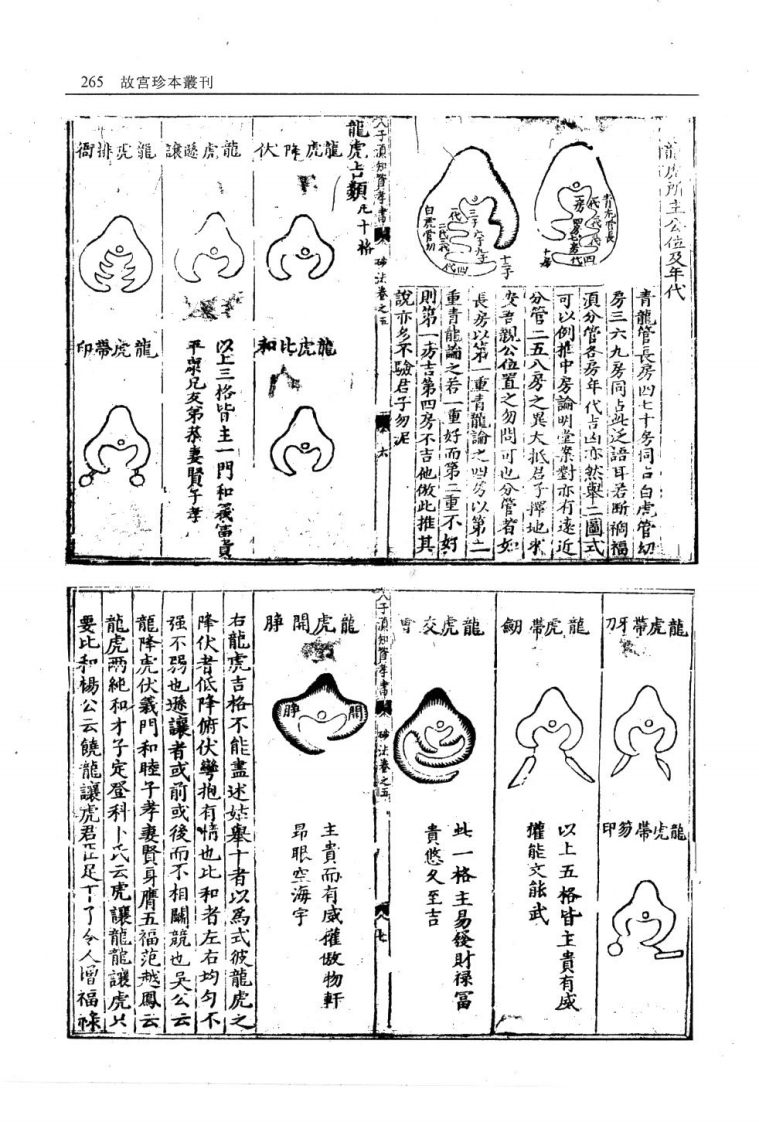 265 故宮珍本叢刊
龍虎所主公位及年代
青龍管長
一代
二代
三代
四代
白虎管幼
一代
二代三代
四代
三子六子九子
十二子
青龍管長房四七十房同占白虎管幼
房三六九房同占此泛語耳若斷禍福
須分管各房年代吉凶亦然舉二圖式
可以例推中房論明堂案對亦有遠近
分管二五八房之異大抵君子擇地求
安吾親公位置之勿問可也分管者如
長房以第一重青龍論之四房以第二
重青龍論之若一重好而第二重不好
則第一房吉第四房不吉他倣此推其
說亦多不驗君子勿泥
人子須知資孝書
砂法卷之五
六
龍虎吉類凡十格
龍虎降伏
龍虎比和
龍虎遜讓
龍虎排衙
龍虎帶印
以上三格皆主一門和義富貴
平康兄友弟恭妻賢子孝
龍虎帶牙刀
龍虎帶笏印
龍虎帶劒
以上五格皆主貴有威
權能文能武
龍虎交會
此一格主易發財祿富
貴悠久至吉
人子須知資孝書
砂法卷之五
七
龍虎開睜
開
睜
主貴而有威權傲物軒
昂眼空海宇
右龍虎吉格不能盡述姑舉十者以爲式彼龍虎之
降伏者低降俯伏彎抱有情也比和者左右均勻不
强不弱也遜讓者或前或後而不相鬭競也吳公云
龍降虎伏義門和睦子孝妻賢身膺五福范越鳳云
龍虎兩純和才子定登科卜氏云虎讓龍龍讓虎只
要比和楊公云饒龍讓虎君正足丁丁令人增福祿